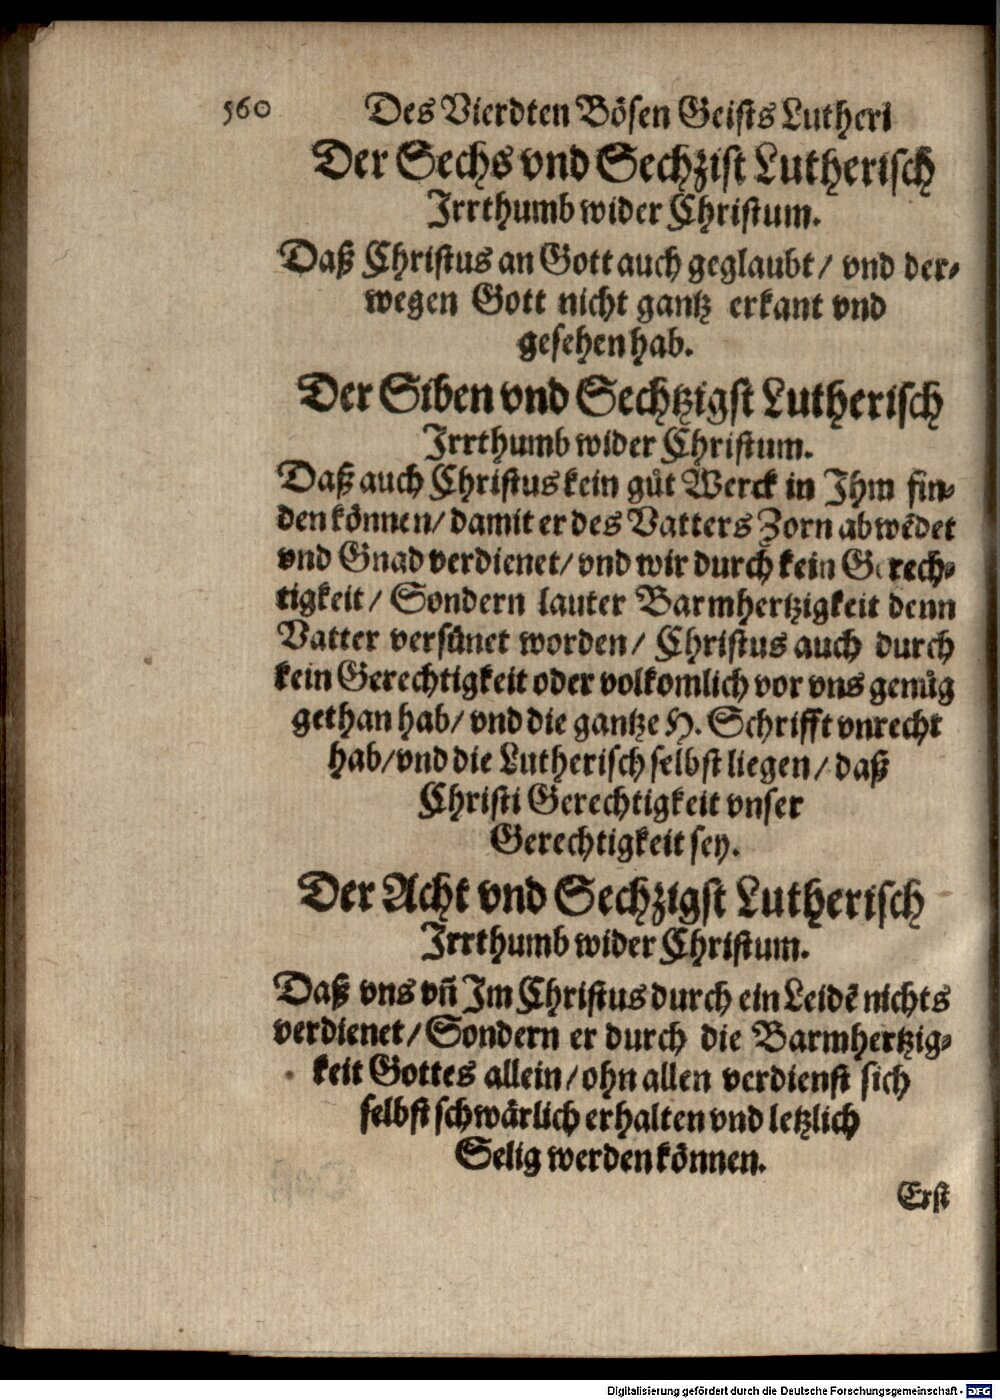 560 Des Vierdten Bösen Geists Lutheri
Der Sechs vnd Sechzist Lutherisch
Irrthumb wider Christum.
Daß Christus an Gott auch geglaubt/ vnd der-
wegen Gott nicht gantz erkant vnd
gesehen hab.
Der Siben vnd Sechtzigst Lutherisch
Irrthumb wider Christum.
Daß auch Christus kein gůt Werck in Ihm fin-
den können/ damit er des Vatters Zorn abwēdet
vnd Gnad verdienet/ vnd wir durch kein Gerech-
tigkeit/ Sondern lauter Barmhertzigkeit denn
Vatter versünet worden/ Christus auch durch
kein Gerechtigkeit oder volkomlich vor vns genůg
gethan hab/ vnd die gantze H. Schrifft vnrecht
hab/ vnd die Lutherisch selbst liegen/ daß
Christi Gerechtigkeit vnser
Gerechtigkeit sey.
Der Acht vnd Sechzigst Lutherisch
Irrthumb wider Christum.
Daß vns vñ Im Christus durch ein Leidē nichts
verdienet/ Sondern er durch die Barmhertzig-
keit Gottes allein/ ohn allen verdienst sich
selbst schwärlich erhalten vnd letzlich
Selig werden können.
Erst
Digitalisierung gefördert durch die Deutsche Forschungsgemeinschaft - DFG